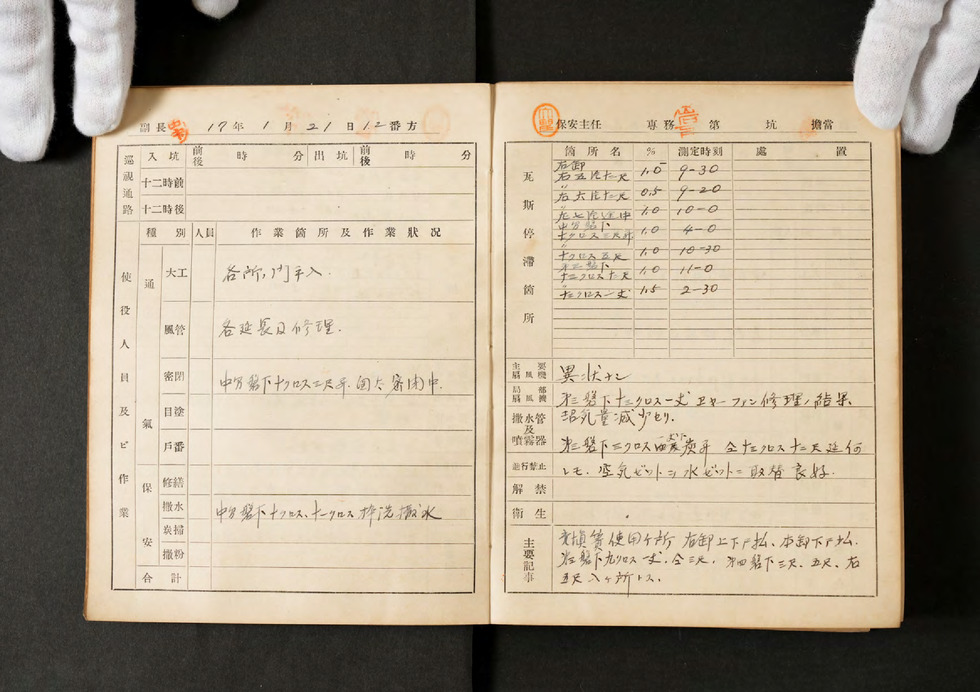 副長 17年1月21日12番方
巡視通路 入坑 前後 時 分 出坑 前後 時 分
十二時前
十二時後
使役人員及ビ作業
種別 人員 作業箇所及作業状況
通氣
大工 各所ノ門手入.
風管 各延長及修理.
密閉 中 盤下十クロス三尺 密閉中.
目塗
戸番
保安
修繕
撒水 中 盤下十クロス、十一クロス枠洗撒水
炭掃
撒粉
合計
保安主任 専務 第 坑 擔當
瓦斯停滯箇所
箇所名 % 測定時刻 處置
右卸
右五片十二尺 1.0 9-30
〃
右六片十二尺 0.5 9-20
〃
右七片 中 1.0 10-0
中 盤下
十クロス三尺 1.0 4-0
〃
十クロス五尺 1.0 10-30
第三盤下
十二クロス十二尺 1.0 11-0
〃
十二クロス一丈 1.5 2-30
主要扇風機 異状ナシ
局部扇風機 第三盤下十二クロス一丈 ファン修理ノ結果、
量減少セリ.
撒水管及噴霧器 第三盤下三クロス 仝十二クロス十二尺延何
レモ、空気ゼットヲ水ゼットニ取替良好.
進行禁止
解禁
衛生
主要記事 充填 使用ヶ所 右卸上下 払、本卸下 払、
第 盤下九クロス一丈、仝三尺、第四盤下三尺、五尺、右
五尺 ヶ所トス.